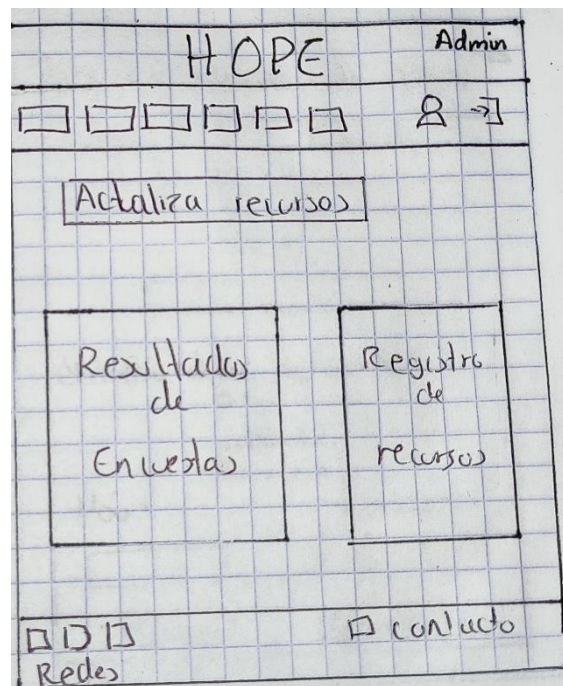 HOPE
Admin
Actaliza recursos
Resultados
de
Encuestas
Registro
de
recursos
Redes
contacto